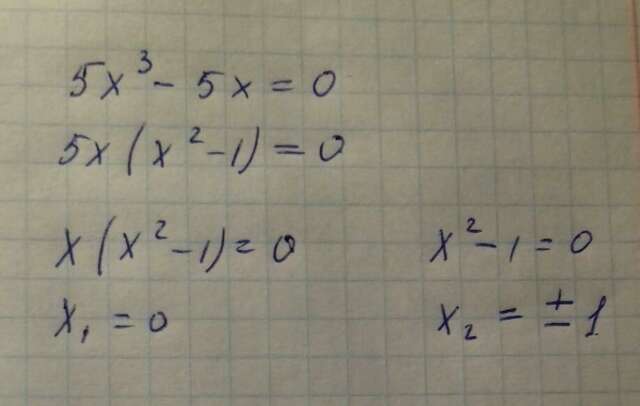 5x³ - 5x = 0
5x(x² - 1) = 0
x(x² - 1) = 0
x² - 1 = 0
x₁ = 0
x₂ = ± 1